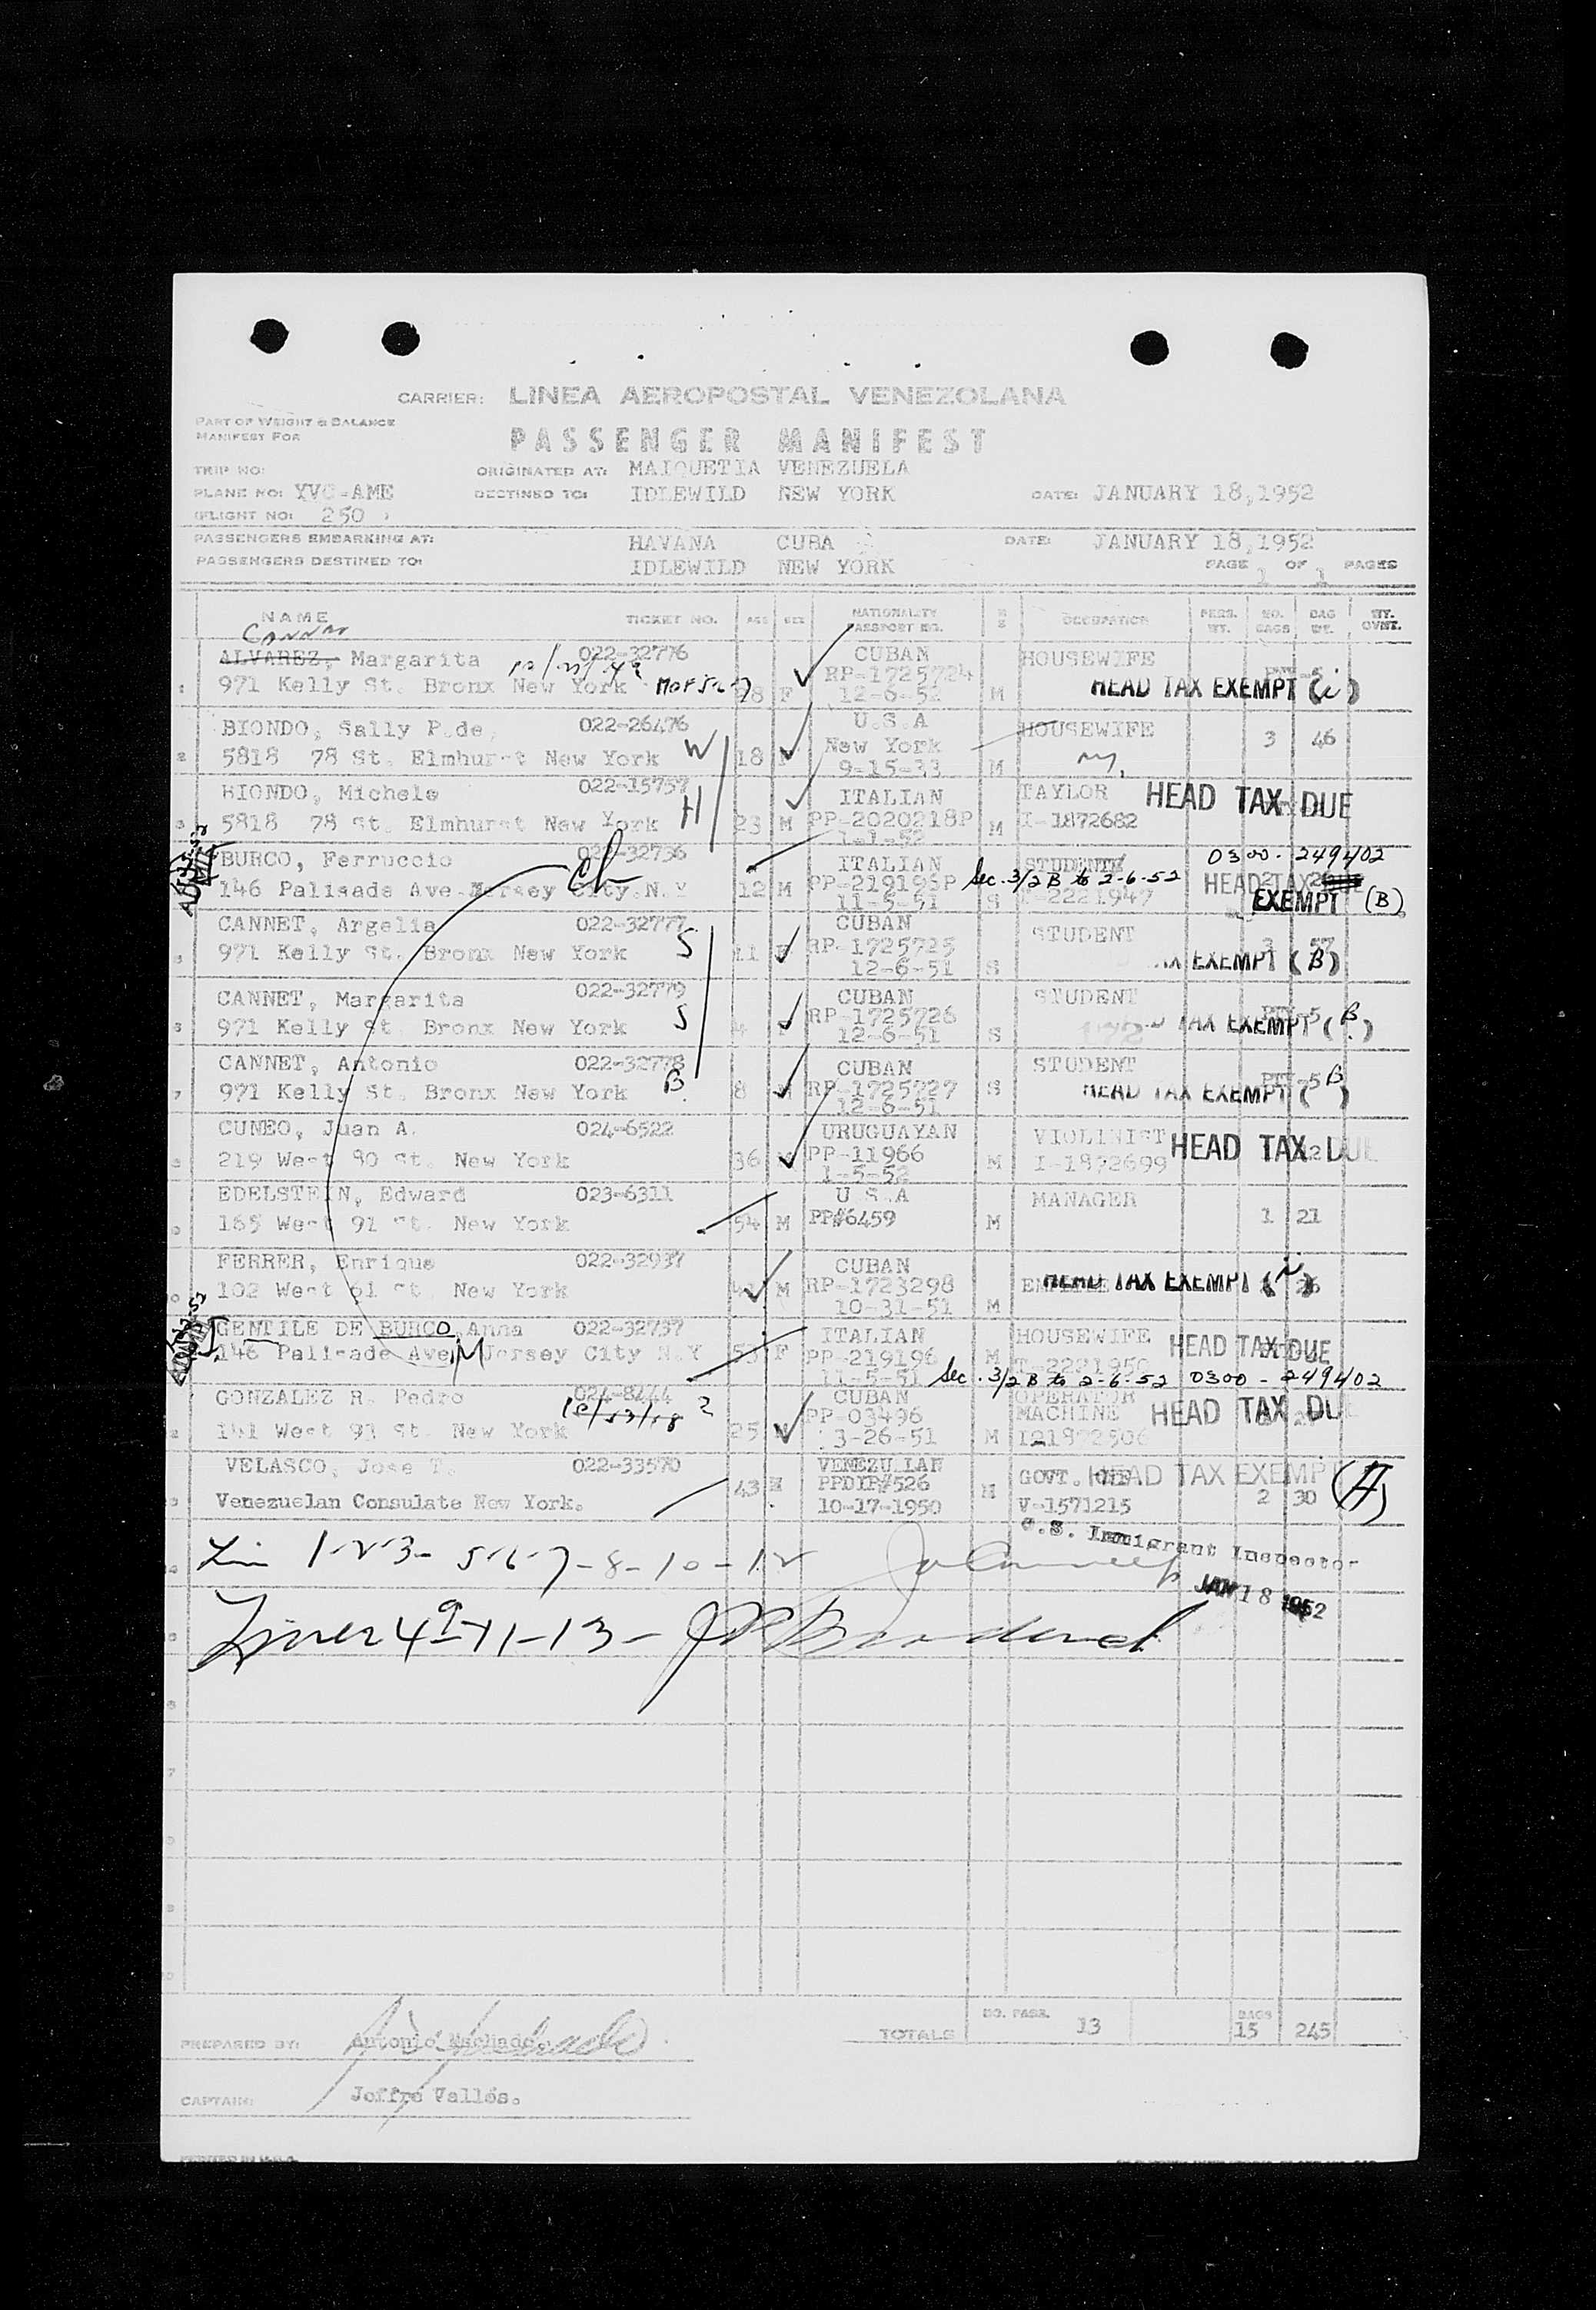 CARRIER: LINEA AEROPOSTAL VENEZOLANA
PART OF WEIGHT & BALANCE
MANIFEST FOR
PASSENGER MANIFEST
TRIP NO:
ORIGINATED AT: MAIQUETIA VENEZUELA
PLANE NO: YVC-AME DESTINED TO: IDLEWILD NEW YORK DATE: JANUARY 18,1952
(FLIGHT NO: 250 )
PASSENGERS EMBARKING AT: HAVANA CUBA DATE: JANUARY 18,1952
PASSENGERS DESTINED TO: IDLEWILD NEW YORK PAGE 1 OF 1 PAGES
NAME TICKET NO. AGE SEX NATIONALITY PASSPORT NO. M S OCCUPATION PERS. WT. NO. BAGS BAG WT.
ALVAREZ, Margarita 022-32776 CUBAN HOUSEWIFE
1 971 Kelly St. Bronx New York 28 F RP-1725724 HEAD TAX EXEMPT (i)
12-6-51 M
BIONDO, Sally P.de, 022-26476 U.S.A HOUSEWIFE
2 5818 78 St. Elmhurst New York W 18 New York 3 46
9-15-33 M
BIONDO, Michele 022-15757 ITALIAN TAYLOR HEAD TAX DUE
3 5818 78 St. Elmhurst New York H 23 M PP-2020218P M I-1872682
1-1-52
BURCO, Ferruccio 022-32736 ITALIAN STUDENT 0300-249402
146 Palisade Ave Jersey City N.Y ch 12 M PP-219195P Sec. 3/2 B to 2-6-52 HEAD TAX
11-5-51 S I-2221947 EXEMPT (B)
CANNET, Argelia 022-32777 CUBAN STUDENT
971 Kelly St. Bronx New York S 11 RP-1725725 3 57
12-6-51 S EXEMPT (B)
CANNET, Margarita 022-32779 CUBAN STUDENT
971 Kelly St. Bronx New York S 4 RP-1725726 TAX EXEMPT (B)
12-6-51 S
CANNET, Antonio 022-32778 CUBAN STUDENT
7 971 Kelly St. Bronx New York B 8 RP-1725727 S HEAD TAX EXEMPT (B)
12-6-51
CUNEO, Juan A. 024-6522 URUGUAYAN VIOLINIST HEAD TAX DUE
219 West 80 St. New York 36 PP-11966 M I-1872699
1-5-52
EDELSTEIN, Edward 023-6311 U S.A MANAGER
165 West 91 St. New York 54 M PP#6459 M 1 21
FERRER, Enrique 022-32937 CUBAN
102 West 61 St. New York M RP-1723298 HEAD TAX EXEMPT 26
10-31-51 M
GENTILE DE BURCO,Anna 022-32737 ITALIAN HOUSEWIFE HEAD TAX DUE
146 Palisade Ave, Jersey City N.Y M 53 F PP-219196 M I-2221950
11-5-51 Sec. 3/2 B to 2-6-52 0300-249402
GONZALEZ R. Pedro 024-8444 CUBAN OPERATOR
141 West 93 St. New York 25 PP-03496 MACHINE HEAD TAX DU
3-26-51 M
VELASCO, Jose T. 022-33570 GOVT. HEAD TAX EXEMPT (H)
Venezuelan Consulate New York. 43 PPDIP#526 2 30
10-17-1950 M V-1571215
U.S. Immigrant Inspector
1-2-3-5-6-7-8-10-12
JAN 18 1952
Lines 4-9-11-13-
TOTALS NO. PASS. 13 BAGS 15 245
PREPARED BY: Antonio Machado.
CAPTAIN: Joffre Vallés.